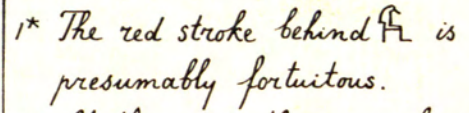 1* The red stroke behind 𓊨 is
presumably fortuitous.